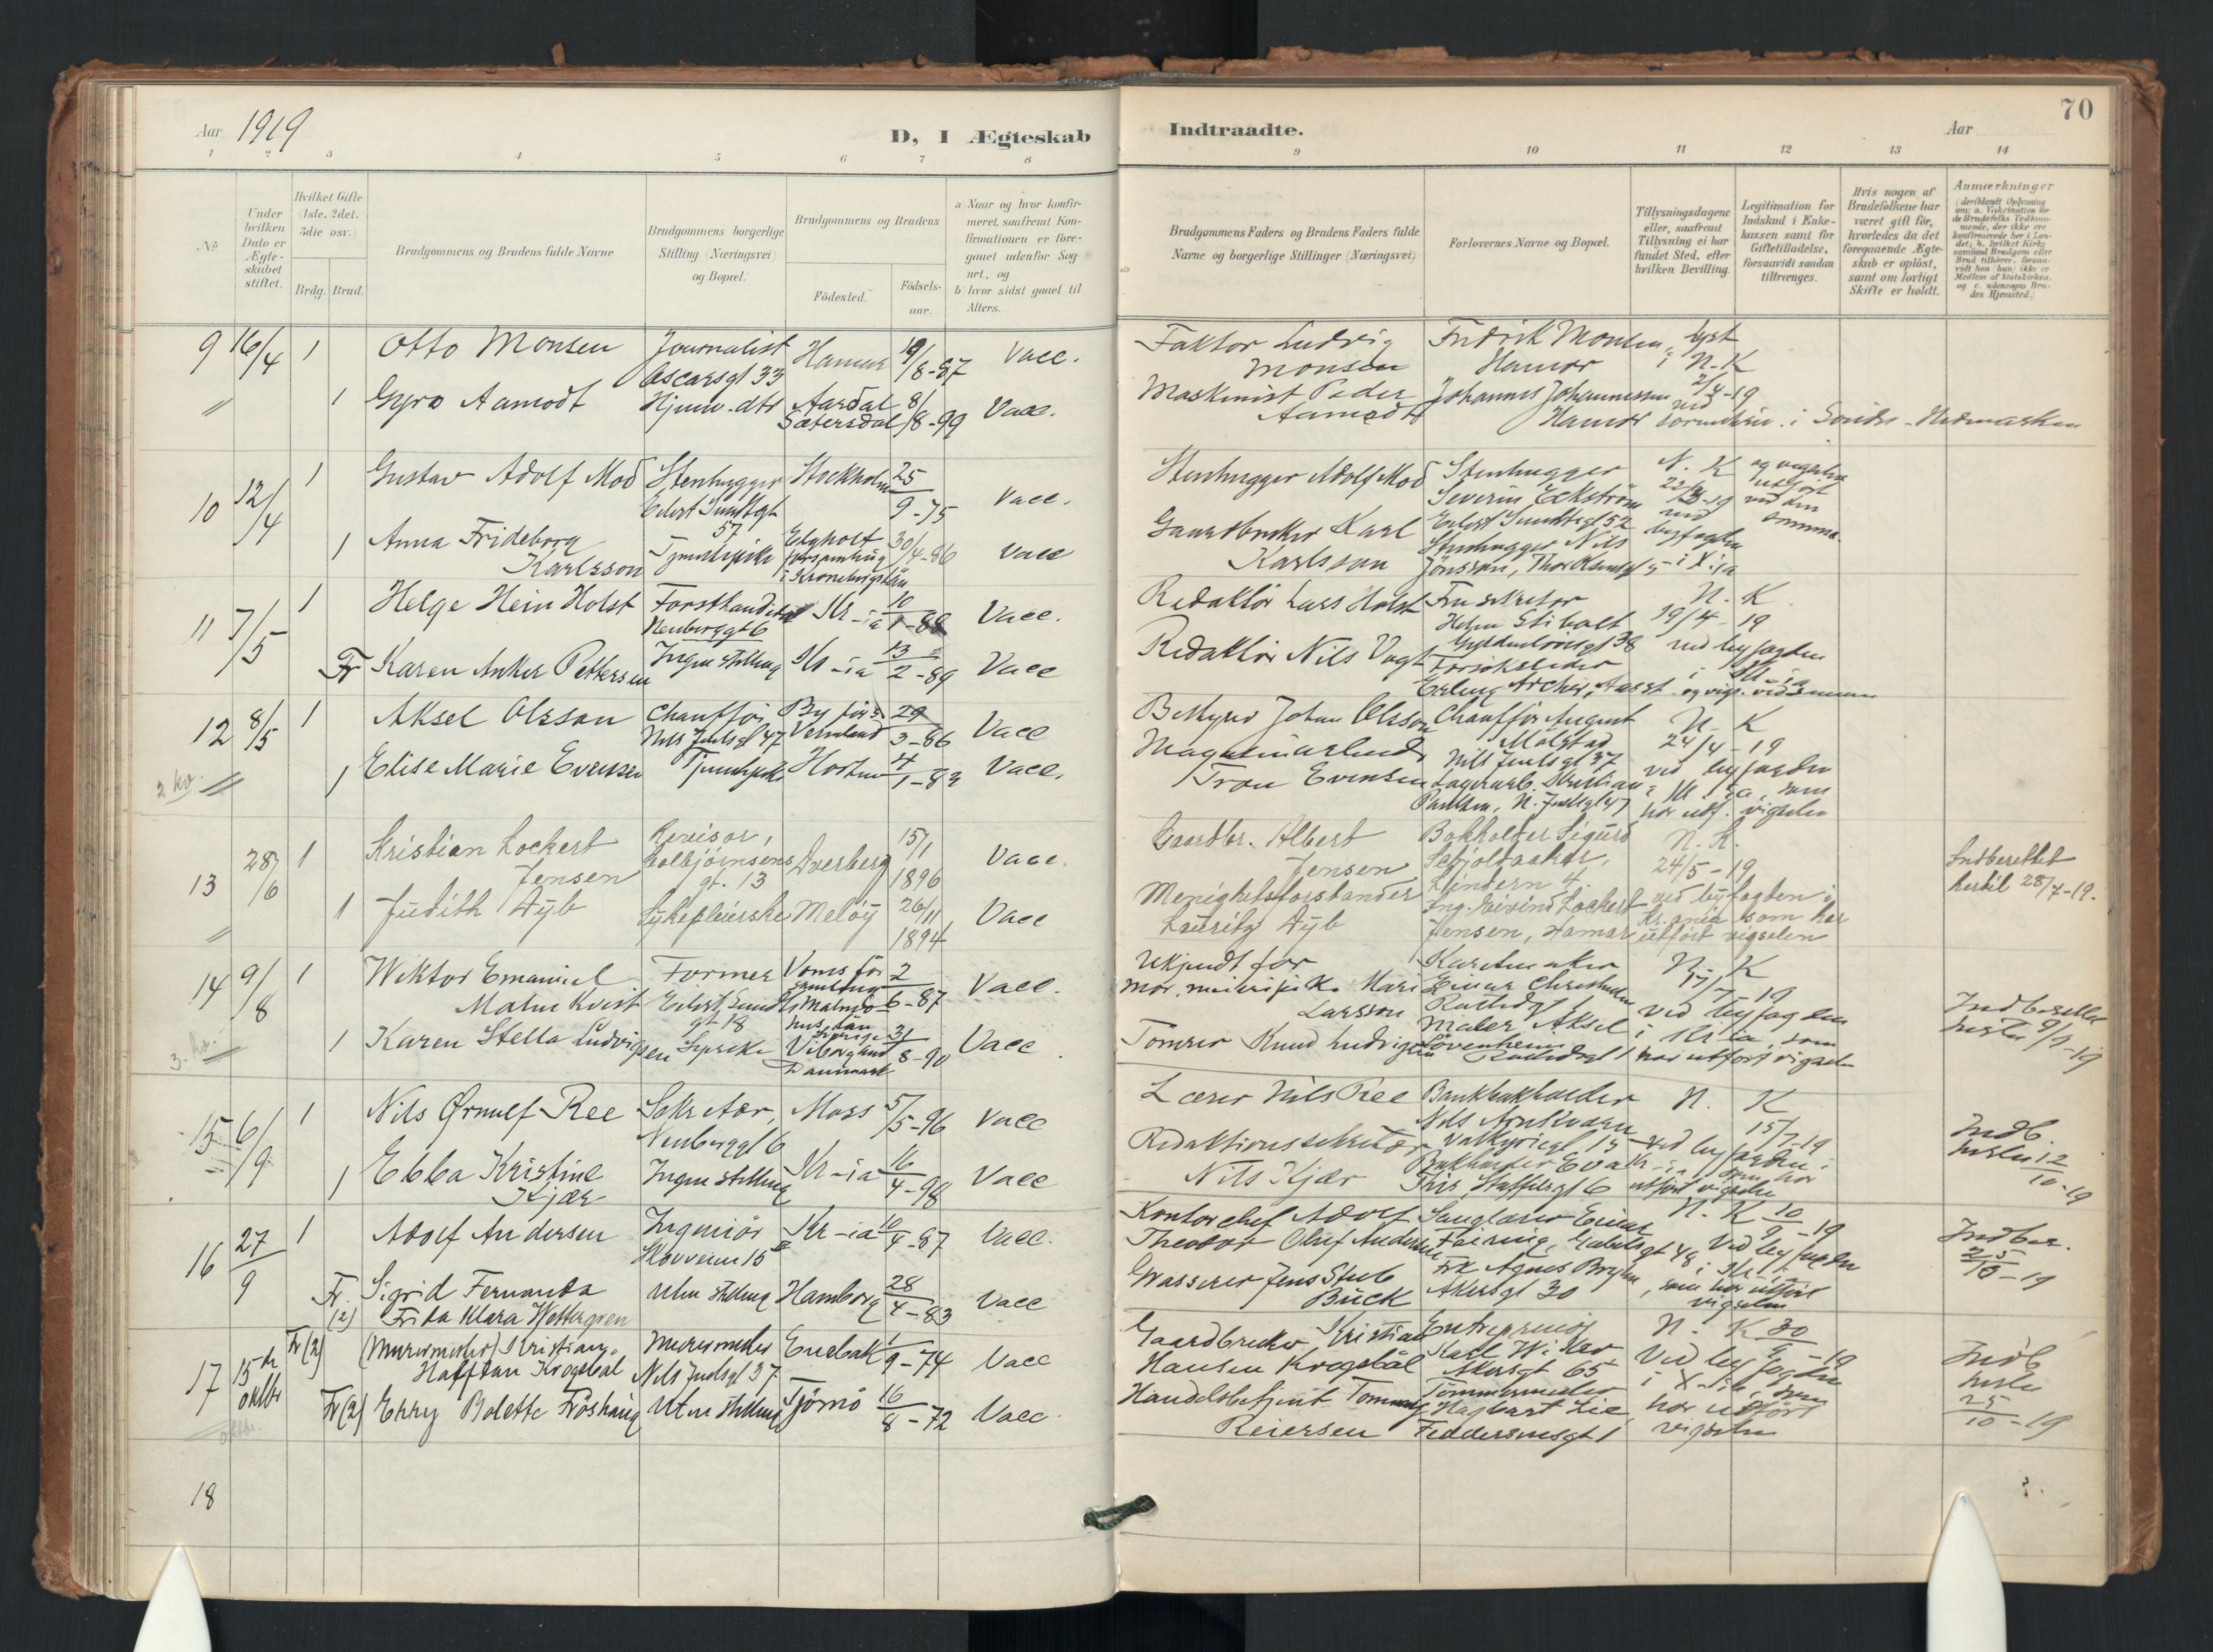 Aar 1919
D, I Ægteskab
1 2 3 4 5 6 7 8
No
Under hvilken Dato er Ægteskabet stiftet.
Hvilket Gifte (1ste, 2det, 3die osv.)
Brdg. Brud.
Brudgommens og Brudens fulde Navne
Brudgommens borgerlige Stilling (Næringsvei) og Bopæl.
Brudgommens og Brudens
Födested.
Födsels-aar.
a) Naar og hvor konfirmeret, saafremt Konfirmationen er foregaaet udenfor Sognet, og
b) hvor sidst gaaet til Alters.
9 16/4 1 Otto Monsen Journalist Oscarsgt 33 Hamar 19/8-87 Vacc.
1 Gyro Aamodt Hjem. dtr Aardal Sætersdal 8/8-99 Vacc.
10 12/4 1 Gustav Adolf Mod Stenhugger Eilert Sundtgt 57 Stockholm 25/9-75 Vacc.
1 Anna Frideborg Karlsson Tjenestepike Elgholt forsamling i Kronobergslän 30/4-86 Vacc
11 7/5 1 Helge Hein Holst Forstkandidat Neuberggt 6 Kr-ia 10/1-88 Vacc.
Fr Karen Anker Pettersen Ingen stilling Kr-ia 13/2-89 Vacc
12 8/5 1 Aksel Olsson Chauffør Nils Juelsgt 47 By förs. Vermland 29/3-86 Vacc
2 kv. 1 Elise Marie Evensen Tjenestepike Horten 4/1-83 Vacc.
13 28/6 1 Kristian Lockert Jensen Revisor, Colbjörnsens gt. 13 Dverberg 15/1 1896 Vacc.
1 Judith Dyb Sykepleierske Melöy 26/11 1894 Vacc
14 9/8 1 Wiktor Emanuel Malmkvist Former Eilert Sundts gt 18 2/6-87 Vacc.
3. kv. 1 Karen Stella Ludvigsen Viborg Danmark 31/8-90 Vacc.
15 6/9 1 Nils Ørnulf Ree Sekretær, Neuberggt 6 Moss 5/5-96 Vacc
1 Ebba Kristine Kjær Ingen stilling Kr-ia 16/4-98 Vacc
16 27/9 1 Adolf Andersen Ingeniör Skovveien 15 Kr-ia 10/4-87 Vacc.
Fr. (2) Sigrid Fernanda Frida Klara Wettergren Uten stilling Hamborg 28/4-83 Vacc
17 15de oktbr Fr (2) (Murermester) Kristian Hafftan Krogsbøl Murermester Nils Juelsgt 37 Enebak 1/9-74 Vacc
Fr (2) Erry Bolette Fröshaug Uten stilling Tjömö 16/8-72 Vacc.
oktbr.
18
Indtraadte.
Aar
70
9 10 11 12 13 14
Brudgommens Faders og Brudens Faders fulde Navne og borgerlige Stillinger (Næringsvei)
Forlovernes Navne og Bopæl.
Tillysningsdagene eller, saafremt Tillysning ei har fundet Sted, efter hvilken Bevilling.
Legitimation for Indskud i Enkekassen samt for Giftetilladelse, forsaavidt saadan tiltrænges.
Hvis nogen af Brudefolkene har været gift för, hvorledes da det foregaaende Ægteskab er oplöst, samt om lovligt Skifte er holdt.
Anmærkninger
(deriblandt Oplysning om: a. Vakcination for de Brudefolks Vedkommende, der ikke ere konfirmerede her i Landet; b. hvilket Kirkesamfund Brudgom eller Brud tilhörer, forsaavidt han (hun) ikke er Medlem af Statskirken, og c. udensogns Brudes Hjemsted.)
Faktor Ludvig Monsen Fredrik Monsen, Hamar lyst i N-K 2/4-19
Maskinist Peder Aamodt Johannes Johannessen Hamar ved sorenskriv. i Söndre-Hedmarken
Stenhugger Adolf Mod Stenhugger Severin Eckström Eilert Sundtsgt 52 N. K 22/3-19 ved byfogden i X-ia og vigselen utført ved den samme.
Gaardbruker Karl Karlsson Stenhugger Nils Jönsson, Thor Olsensgt 5
Redaktör Lars Holst Fru sekretær Helen Stibolt Gyldenlövesgt 38 N. K. 19/4-19 ved byfogden i Kr-ia og vigs. ved samme
Redaktör Nils Vogt Forsöksleder Erling Archer, Aas st.
Bestyrer Johan Olsson Chauffør August Molstad Nils Juelsgt 37 N-K 24/4-19 ved byfogden i Kr. ia, som har utf. vigselen
Tron Evensen Lagerarb. Kristian Paulsen, N. Juelsgt 47
Gaardbr. Albert Jensen Bokholder Sigurd Lindern 4. N. K. 24/5-19 ved byfogden i Kr.ania som har utført vigselen Indberettet hertil 28/7-19.
Menighetsforstander Lauritz Dyb Ing. Eivind Lockert Jensen, Hamar
Ukjendt far N-K 17/7-19 ved byfogden i Kr ia, som har utført vigselen
Larsson Maler Aksel
Tömrer Knud Ludvigsen 9/9-19
Lærer Nils Ree Bankbokholder Nils Arnkværn Valkyriegt 15 N. K 15/7-19 ved byfogden i Kr-ia som har utført vigselen Indb. 12/10-19
Redaktionssekretær Nils Kjær Bokholder Eva Staffeldsgt 6
Kontorchef Adolf Theodor Oluf Andersen Sanglærer Einar Feiring, Gabelsgt 48 N. K 10/9-19 Ved byfogden i Kr , som har utfört vigselen Indber. 2/10-19
Grosserer Jens Stub Bück Frk Agnes Bryhn Akersgt 30
Gaardbruker Kristian Hansen Krogsbøl Entreprenör Karl Wilker Akersgt 65 N. K 30/9-19 Ved byfogden i X-ia, som har utfört vigselen Indb 25/10-19
Handelsbetjent Tommy Reiersen Tömmermester Hagbart Lie Feddersensgt 1